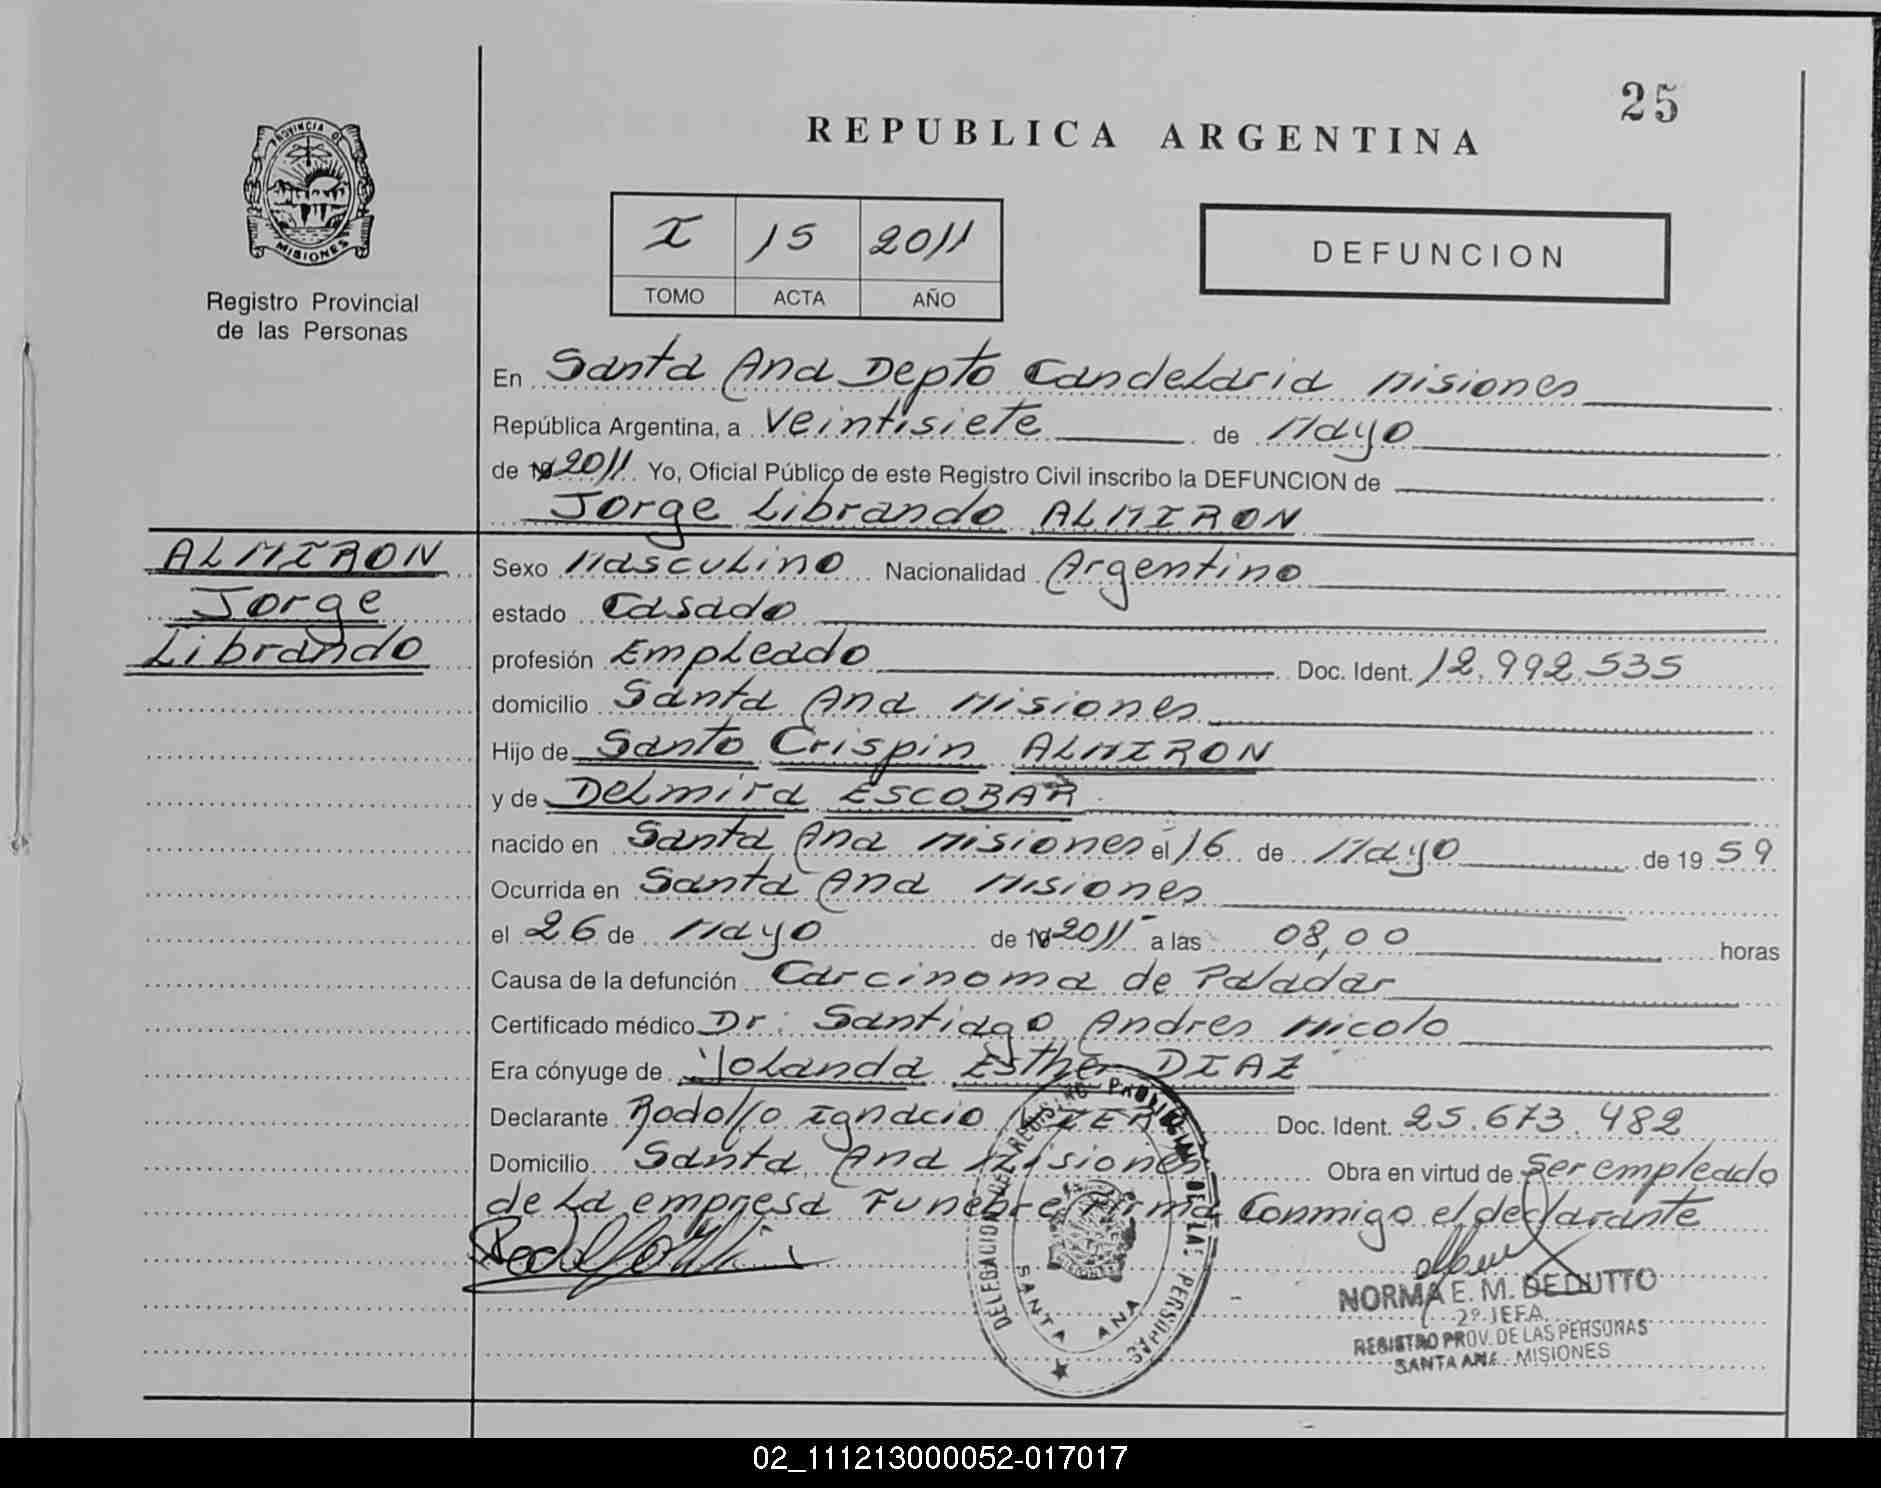 25
REPUBLICA ARGENTINA
PROVINCIA DE
MISIONES
Registro Provincial
de las Personas
I 15 2011
TOMO ACTA AÑO
DEFUNCION
En Santa Ana Depto Candelaria Misiones
República Argentina, a Veintisiete de Mayo
de 19 2011 Yo, Oficial Público de este Registro Civil inscribo la DEFUNCION de
Jorge Librando ALMIRON
ALMIRON
Jorge
Librando
Sexo Masculino Nacionalidad Argentino
estado Casado
profesión Empleado Doc. Ident. 12.992.535
domicilio Santa Ana Misiones
Hijo de Santo Crispin ALMIRON
y de Delmira ESCOBAR
nacido en Santa Ana Misiones el 16 de Mayo de 19 59
Ocurrida en Santa Ana Misiones
el 26 de Mayo de 19 2011 a las 08,00 horas
Causa de la defunción Carcinoma de Paladar
Certificado médico Dr: Santiago Andres Micolo
Era cónyuge de Yolanda Esther DIAZ
Declarante Rodolfo Ignacio Doc. Ident. 25.673.482
Domicilio Santa Ana Misiones Obra en virtud de Ser empleado
de La empresa Funebre Firma Conmigo el declarante
DELEGACION DEL REGISTRO PROVINCIAL DE LAS PERSONAS
SANTA ANA
NORMA E. M. DE DUTTO
2º JEFA
REGISTRO PROV. DE LAS PERSONAS
SANTA ANA - MISIONES
02_111213000052-017017